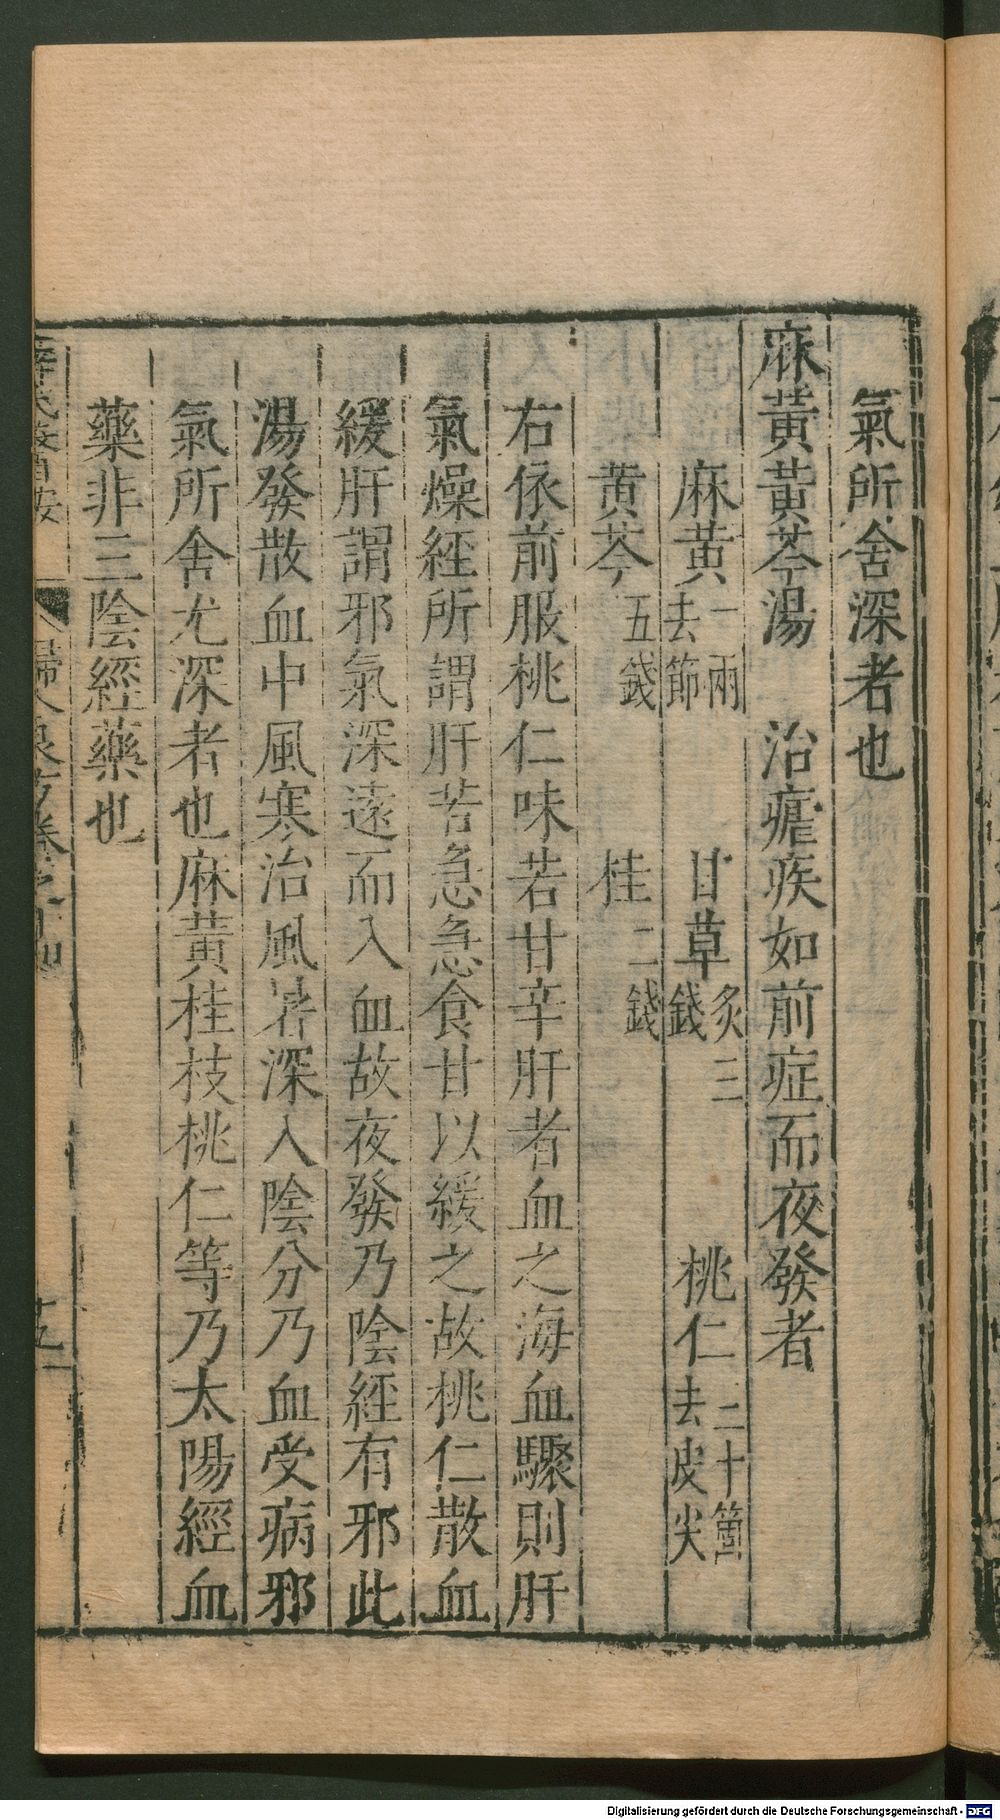 氣所舍深者也
麻黃黃芩湯　治瘧疾如前症而夜發者
麻黃一兩去節　甘草炙三錢　桃仁二十箇去皮尖
黄芩五錢　桂二錢
右依前服桃仁味若甘辛肝者血之海血驟則肝
氣燥経所謂肝苦急急食甘以緩之故桃仁散血
緩肝謂邪氣深遠而入血故夜發乃陰經有邪此
湯發散血中風寒治風暑深入陰分乃血受病邪
氣所舍尤深者也麻黃桂枝桃仁等乃太陽經血
藥非三陰經藥也
婦人良方卷之十四
十五
Digitalisierung gefördert durch die Deutsche Forschungsgemeinschaft - DFG